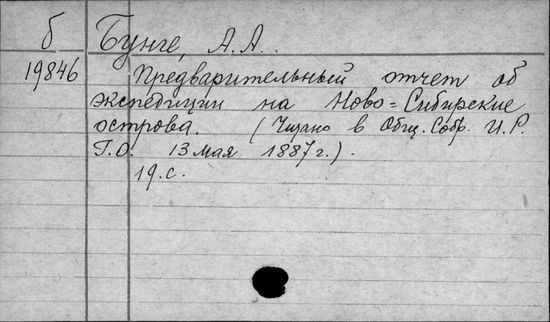 б Бунге, А.А.
19846 Предварительный отчет об
экспедиции на Ново=Сибирские
острова. (Читано в Общ. Собр. И.Р.
Г.О. 13 мая 1887 г.).
19.с.